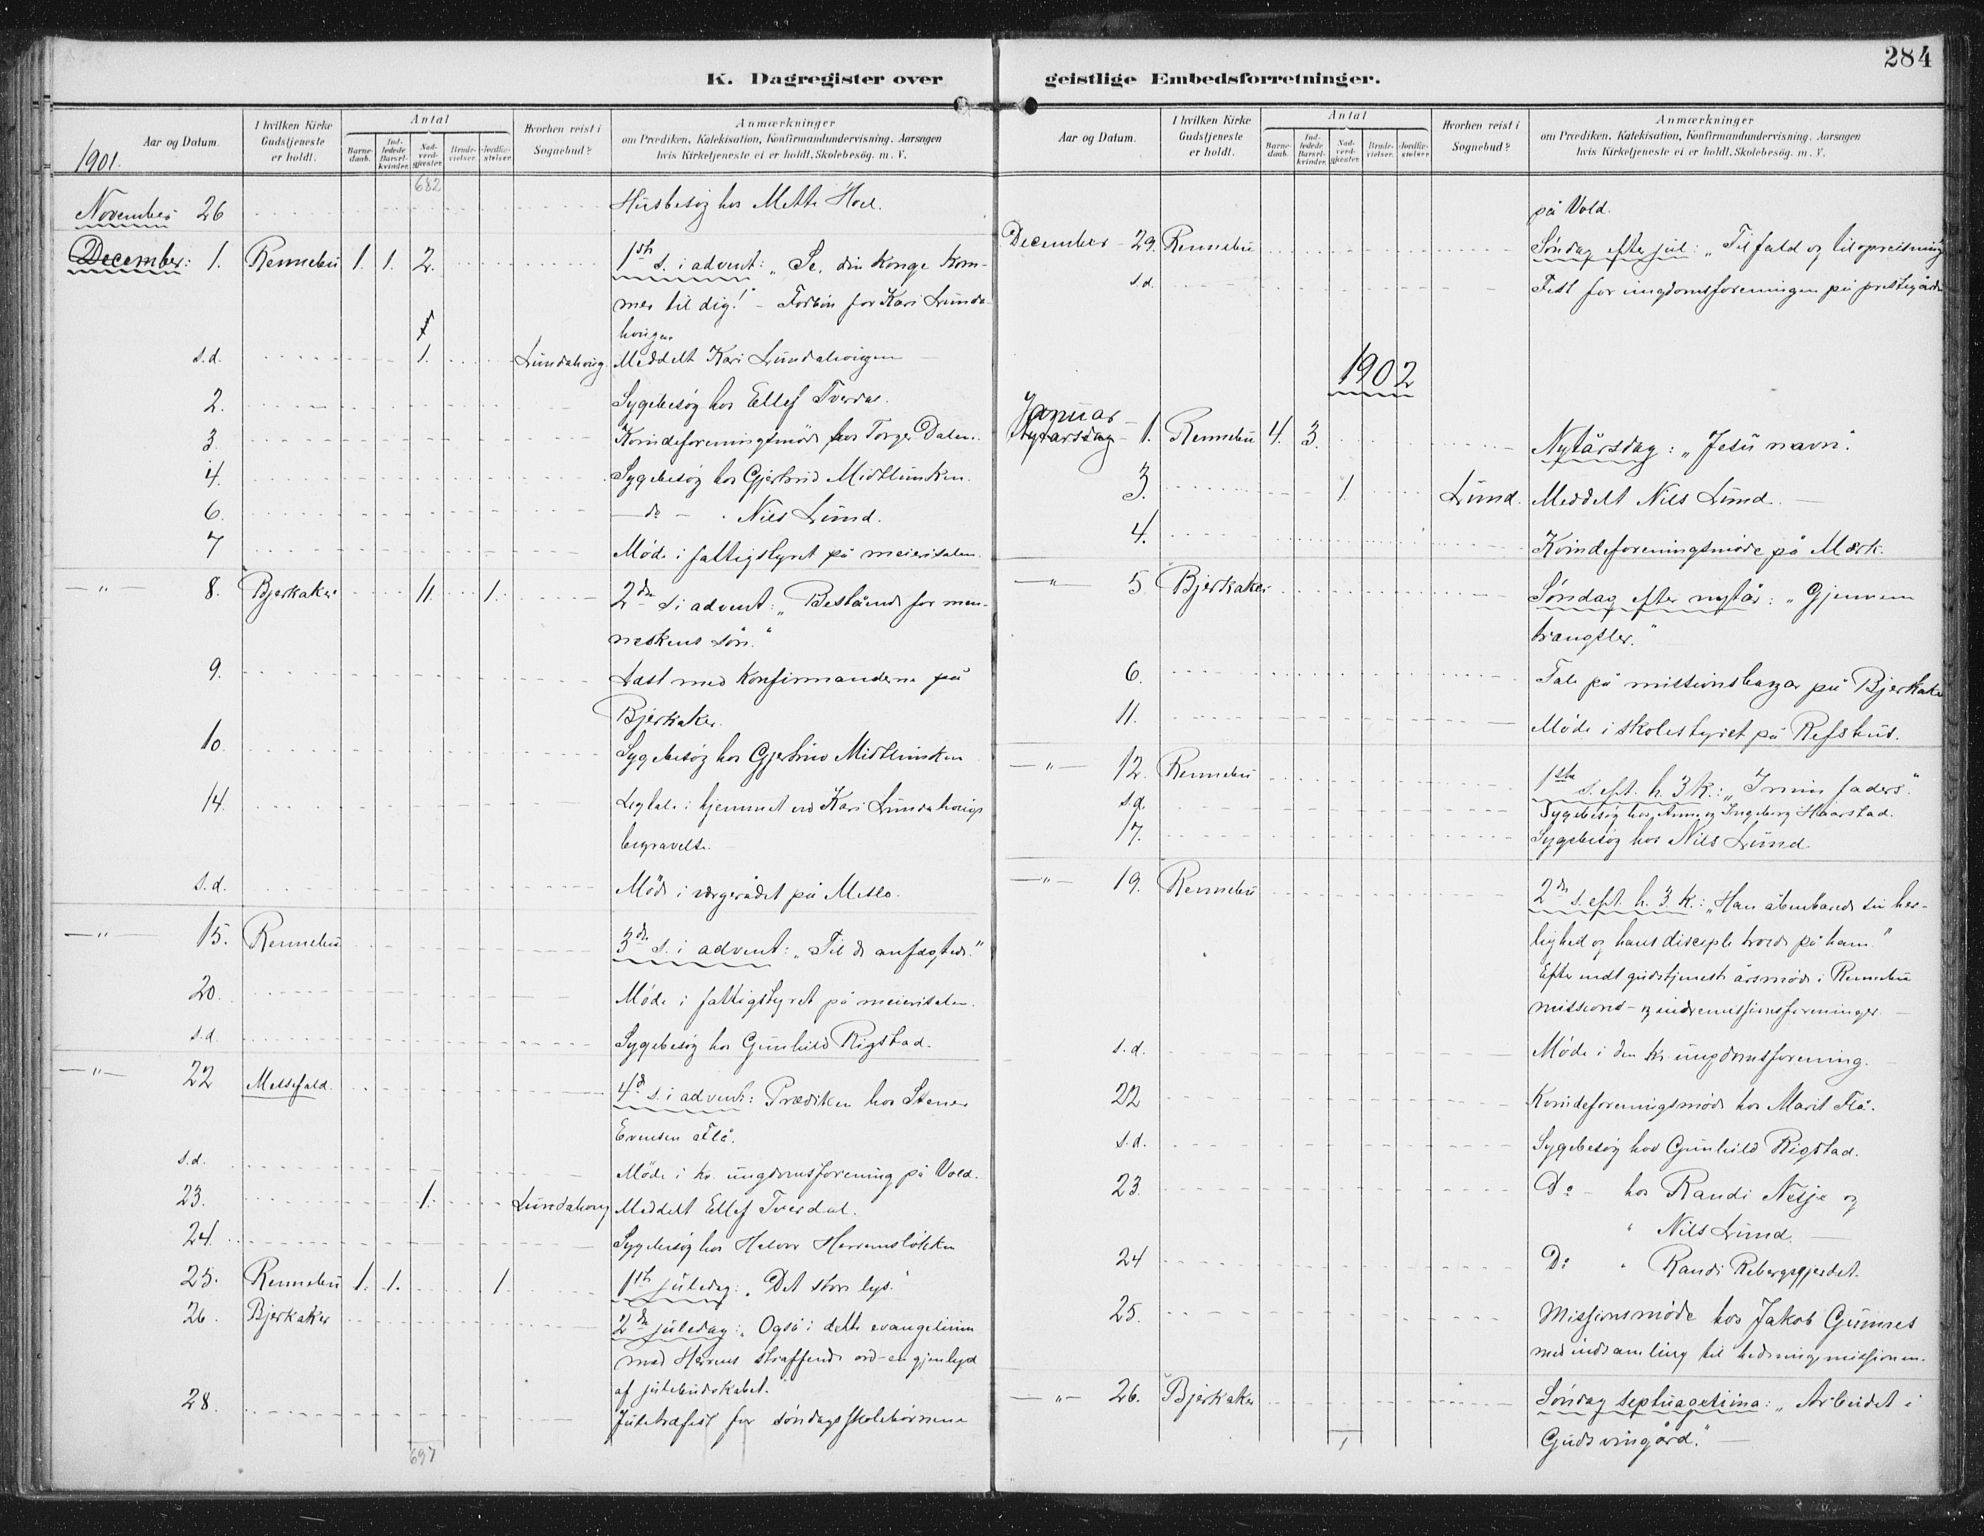 284
K. Dagregister over geistlige Embedsforretninger.
Aar og Datum.
I hvilken Kirke Gudstjeneste er holdt.
Antal
Barnedaab.
Indledede Barselkvinder.
Nadverdgjester.
Brudevielser.
Jordfæstelser.
Hvorhen reist i Sognebud?
Anmærkninger
om Prædiken, Katekisation, Konfirmandundervisning. Aarsagen
hvis Kirketjeneste ei er holdt. Skolebesøg. m. V.
1901.
682
November 26 Husbesøg hos Mette Hoel.
December: 1. Rennebu 1. 1. 2. 1ste s. i advent: „Se, din konge kom-
mer til dig!" - Forbøn for Kari Lunda-
hougen
s.d. 1. Lundahoug Meddelt Kari Lundahougen
2. Sygebesøg hos Ellef Tverdal.
3. Kvindeforeningsmøde hos Torger Dalen.
4. Sygebesøg hos Gjertrud Midtlunken.
6. — do — Nils Lund.
7 Møde i fattigstyret på meierisalen.
— " — 8. Bjerkaker 11. 1. 2den s. i advent: „Bestående for men-
neskens søn."
9. Læst med konfirmanderne på
Bjerkaker.
10. Sygebesøg hos Gjertrud Midtlunken
14. Ligtale i hjemmet ved Kari Lundahougs
begravelse.
s.d. Møde i værgerådet på Meslo.
— " — 15. Rennebu 3die s. i advent: „Til de anfægtede."
20. Møde i fattigstyret på meierisalen.
s.d. Sygebesøg hos Gunhild Rigstad.
— " — 22 Messefald. 4de s. i advent: Prædiken hos Stener
Evensen Flå.
s.d. Møde i kr. ungdomsforening på Vold.
23. 1. Lundahoug Meddelt Ellef Tverdal.
24. Sygebesøg hos Halvor Herremsløkken
25. Rennebu 1. 1. 1. 1ste juledag: „Det store lys."
26. Bjerkaker 2den juledag: „Også i dette evangelium
med Herrens straffende ord - en gjenlyd
af julebudskabet."
28. Juletræfest for søndagsskolebørnene
697
Aar og Datum.
I hvilken Kirke Gudstjeneste er holdt.
Antal
Barnedaab.
Indledede Barselkvinder.
Nadverdgjester.
Brudevielser.
Jordfæstelser.
Hvorhen reist i Sognebud?
Anmærkninger
om Prædiken, Katekisation, Konfirmandundervisning. Aarsagen
hvis Kirketjeneste ei er holdt. Skolebesøg. m. V.
på Vold.
December - 29. Rennebu Søndag efter jul: „Til fald og til opreisning
s.d. Fest for ungdomsforeningen på prestegården
1902
Januar
Nytårsdag - 1. Rennebu 4. 3. Nytårsdag: „Jesu navn."
3. 1. Lund. Meddelt Nils Lund. —
4. Kvindeforeningsmøde på Mærk.
— " — 5. Bjerkaker Søndag efter nytår: „Gjennem
trængsler."
6. Tale på missionsbazar på Bjerkaker
11. Møde i skolestyret på Refshus.
— " — 12. Rennebu 1ste s. eft. h. 3 k.: „I min faders".
s.d. Sygebesøg hos Anne og Ingeborg Haarstad.
17. Sygebesøg hos Nils Lund
— " — 19. Rennebu 2den s. eft. h. 3 k.: „Han åbenbarede sin her-
lighed og hans disciple troede på ham."
Efter endt gudstjeneste årsmøde i Rennebu
missions- og indremissionsforeninger. —
s.d. Møde i den kr. ungdomsforening.
22 Kvindeforeningsmøde hos Marit Flå.
s.d. Sygebesøg hos Gunhild Rigstad.
23. Do - hos Randi Nesje og
" Nils Lund. —
24 Do " Randi Rebergsgjerdet.
25. Missionsmøde hos Jakob Gunnes
med indsamling til hedningemissionen.
— " — 26. Bjerkaker Søndag septuagesima: „Arbeidet i
Guds vingård." —
1